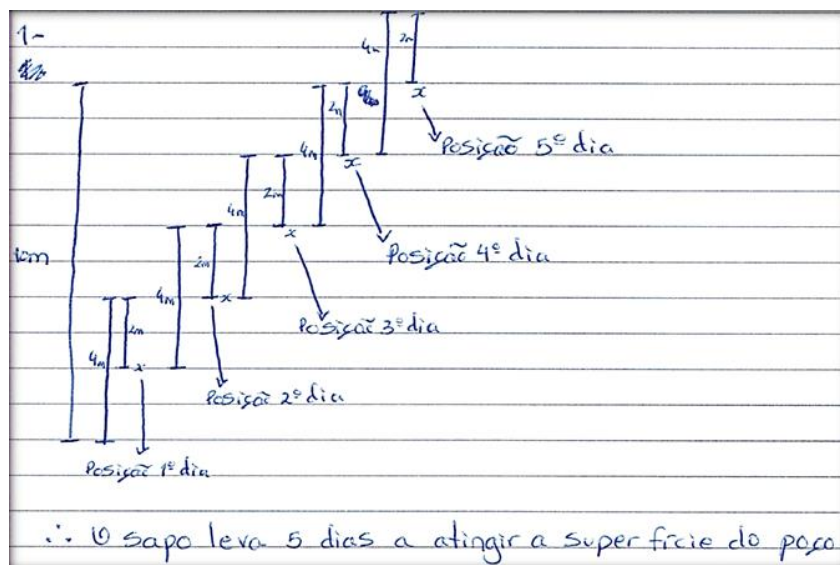 1-
4m
2m
x
Posição 5º dia
2m
4m
x
Posição 4º dia
4m
2m
x
Posição 3º dia
10m
4m
2m
x
Posição 2º dia
4m
2m
x
Posição 1º dia
∴ O sapo leva 5 dias a atingir a superfície do poço